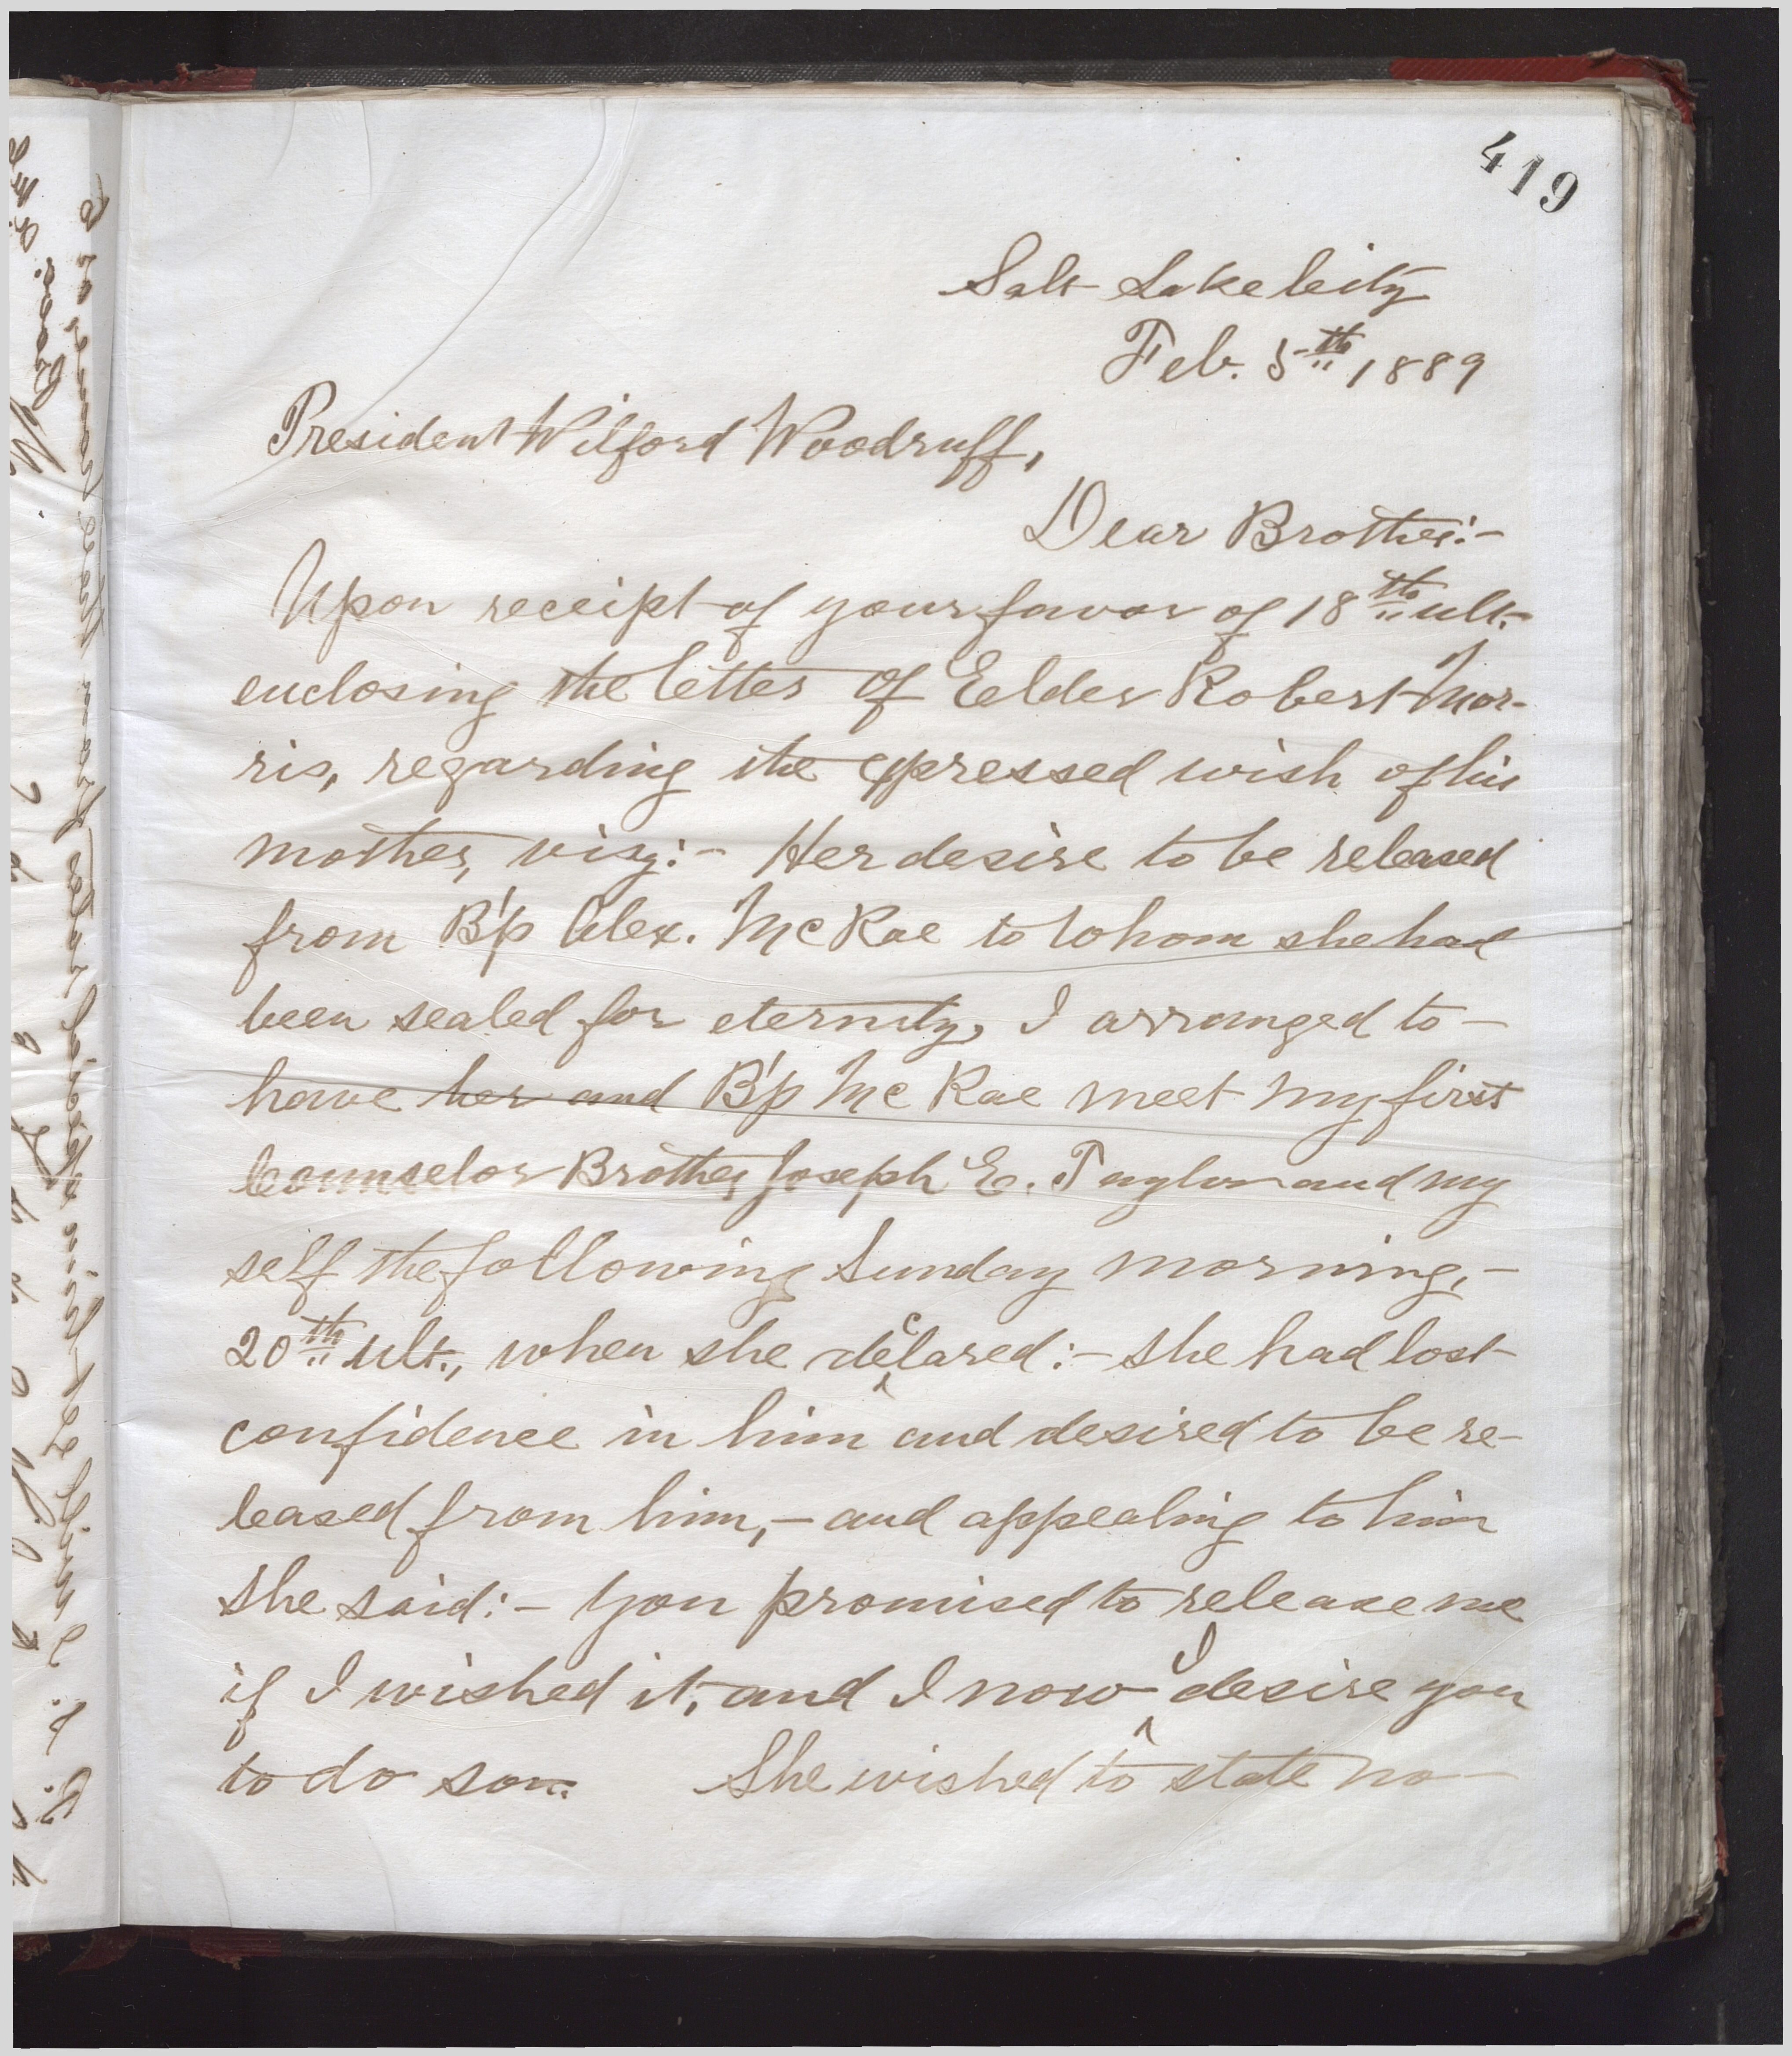 419
Salt Lake City
Feb. 5th 1889
President Wilford Woodruff,
Dear Brother:-
Upon receipt of your favor of 18th ult.
enclosing the letter of Eelder Robert Mor-
ris, regarding the expressed wish of his
mother, viz;:- Her desire to be released
from B'p Alex. McRae to whom she had
been sealed for eternity, I arranged to-
have her and B'p McRae meet my first
Counselor Brother Joseph E. Taylor and my
self the following Sunday morning,-
20th ult., when she declared:- she had lost
confidence in him and desired to be re-
leased from him,- and appealing to him
she said:- You promised to release me
if I wished it, and I now desire you
to do so.
She wished to state no-